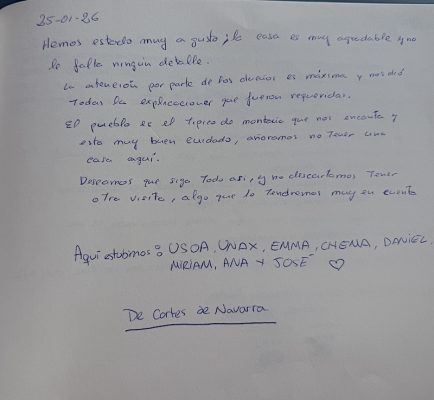 25-01-26
Hemos estado muy a gusto, la casa es muy agradable y no
le falta ningún detalle.
La atención por parte de los dueños es máxima y nos dió
Todas la explicaciones que fueron requeridas.
El pueblo es el típico de montaña que nos encanta y
esta muy buen cuidado, añoramos no Tener una
casa aquí.
Deseamos que siga Todo asi, y no descartamos Tener
otra visita, algo que lo Tendremos muy en cuenta
Aquí estubimos: USOA, UNAX, EMMA, CHEMA, DANIEL,
MIRIAM, ANA Y JOSÉ ♡
De Cortes de Navarra